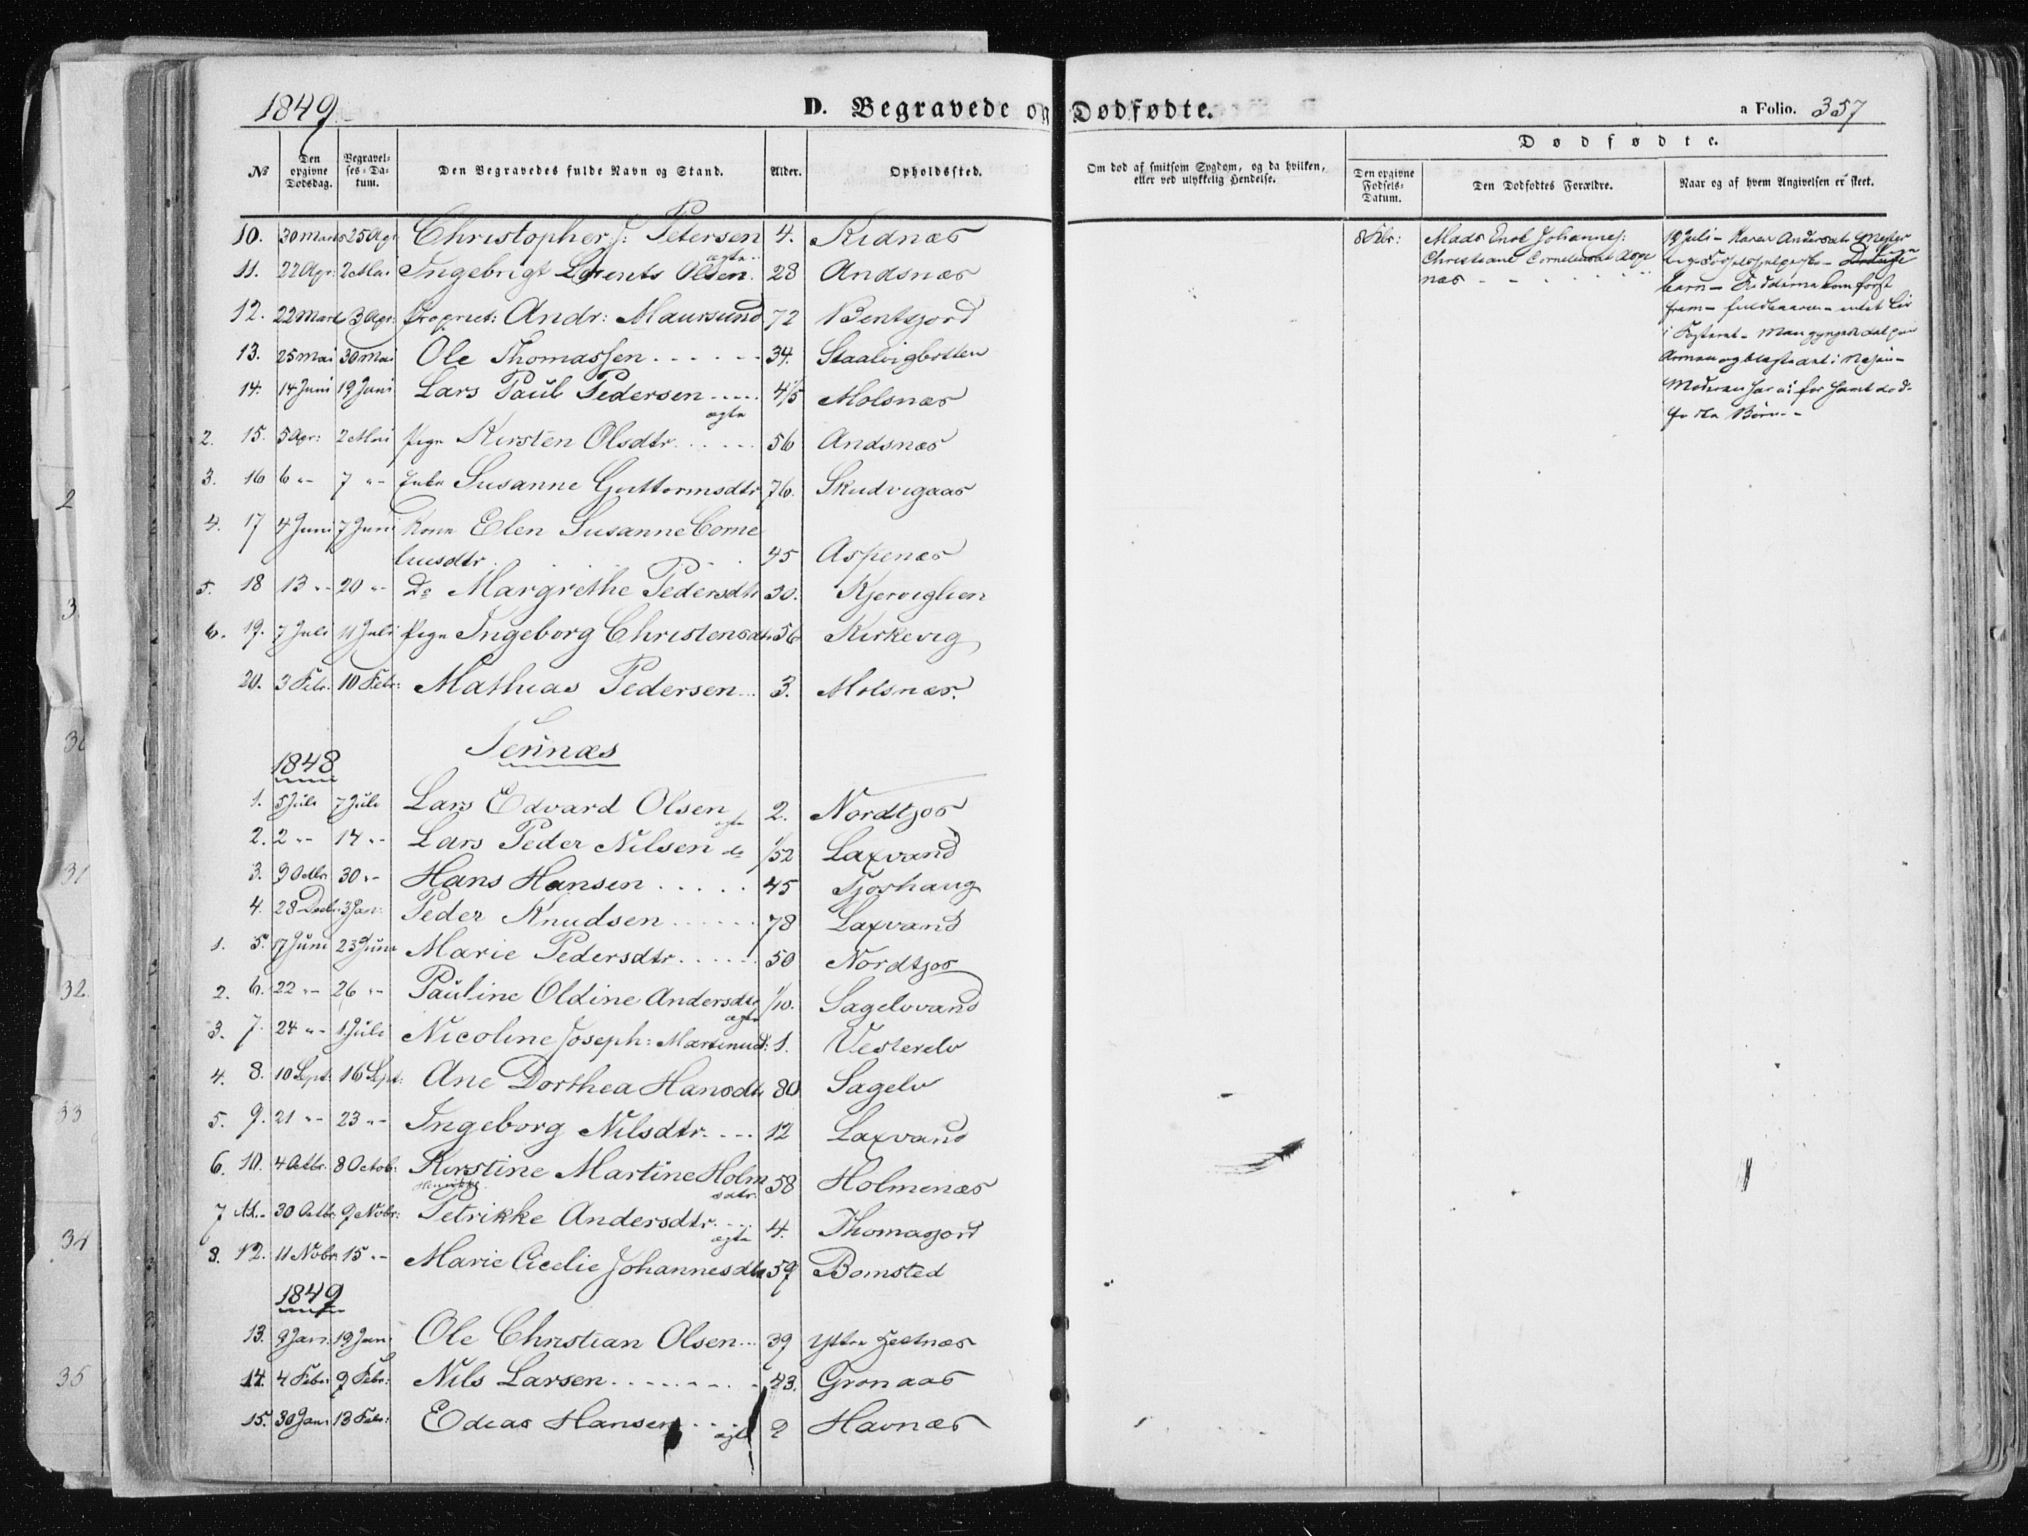 1849.
D. Begravede og Dødfødte.
a Folio. 357
Dødfødte.
№ Den opgivne Dødsdag. Begravelses-Datum. Den Begravedes fulde Navn og Stand. Alder. Opholdssted. Om død af smitsom Sygdom, og da hvilken, eller ved ulykkelig Hendelse. Den opgivne Fødsels-Datum. Den Dødfødtes Forældre. Naar og af hvem Angivelsen er skeet.
10. 30 Marts 25 Apr Christopher J: Petersen 4. Kidnæs
ægte
11. 22 Apr: 2 Mai Ingebrigt Lorents Olsen. 28 Andsnæs
12. 22 Marts 3 Apr: Propriet: Andr: Maursund 72 Bentsjord
13. 25 Mai 30 Mai Ole Thomassen 34. Staalvigbotten
14. 14 Juni 19 Juni Lars Paul Pedersen 4/5 Molsnæs
ægte
2. 15. 5 Apr: 2 Mai Pige Kirsten Olsdtr. 56 Andsnæs
3. 16 6 "- 7 "- Enke Susanne Guttormsdtr 76. Skudvigaas
4. 17 4 Juni 7 Juni Kone Elen Susanne Corne
liusdtr. 45 Aspenæs
5. 18 13 "- 20 "- Do Margrethe Pedersdtr 30. Kjerviglien
6. 19. 7 Juli 11 Juli Pige Ingeborg Christensdtr 56 Kirkevig
20. 3 Febr. 10 Febr: Mathias Pedersen 3. Molsnæs.
8 Mads Enok Johannes:
Christiane Corneliusdt Aspe
næs
19 Juli - Karen Andersdt
barn - kom først
frem - intet Liv
i Fosteret -
Moderen har for
Børn.
Tennæs
1848
1. 5 Juli 7 Juli Lars Edvard Olsen 2. Nordtjos
ægte
2. 2 "- 14 "- Lars Peder Nilsen do 1/52 Laxvand
3. 9 Octbr. 30 "- Hans Hansen 45 Tjoshaug
4. 28 Decbr. 3 Jan: Peder Knudsen 78 Laxvand
1. 5. 17 Juni 23 Juni Marie Pedersdtr. 50 Nordtjos
2. 6. 22 "- 26 "- Pauline Oldine Andersdtr 1/10. Sagelvvand
ægte
3. 7. 24 "- 1 Juli Nicoline Joseph: Martinusd: 1. Vesterelv
4. 8. 10 Sept: 16 Sept: Ane Dorthea Hansdtr 80 Sagelv
5. 9. 21 "- 23 "- Ingeborg Nilsdtr. 12 Laxvand
6. 10. 4 Octbr. 8 Octob: Kirstine Martine Holm
sdtr. 58 Holmenæs
7 11. 30 Octbr. 9 Nobr: Petrikke Andersdtr. 4. Thomasjord
ægte
8. 12. 11 Nobr: 15 "- Marie Cicelie Johannesdtr 59 Bomsted
1849
13. 9 Jan: 19 Jan: Ole Christian Olsen 39 Yttre Hestnæs
14. 4 Febr: 9 Febr: Nils Larsen 43. Grønaas
15. 30 Jan: 13 Febr: Edias Hansen 2 Havnæs
ægte
2
3
30
31
32
33
34
35